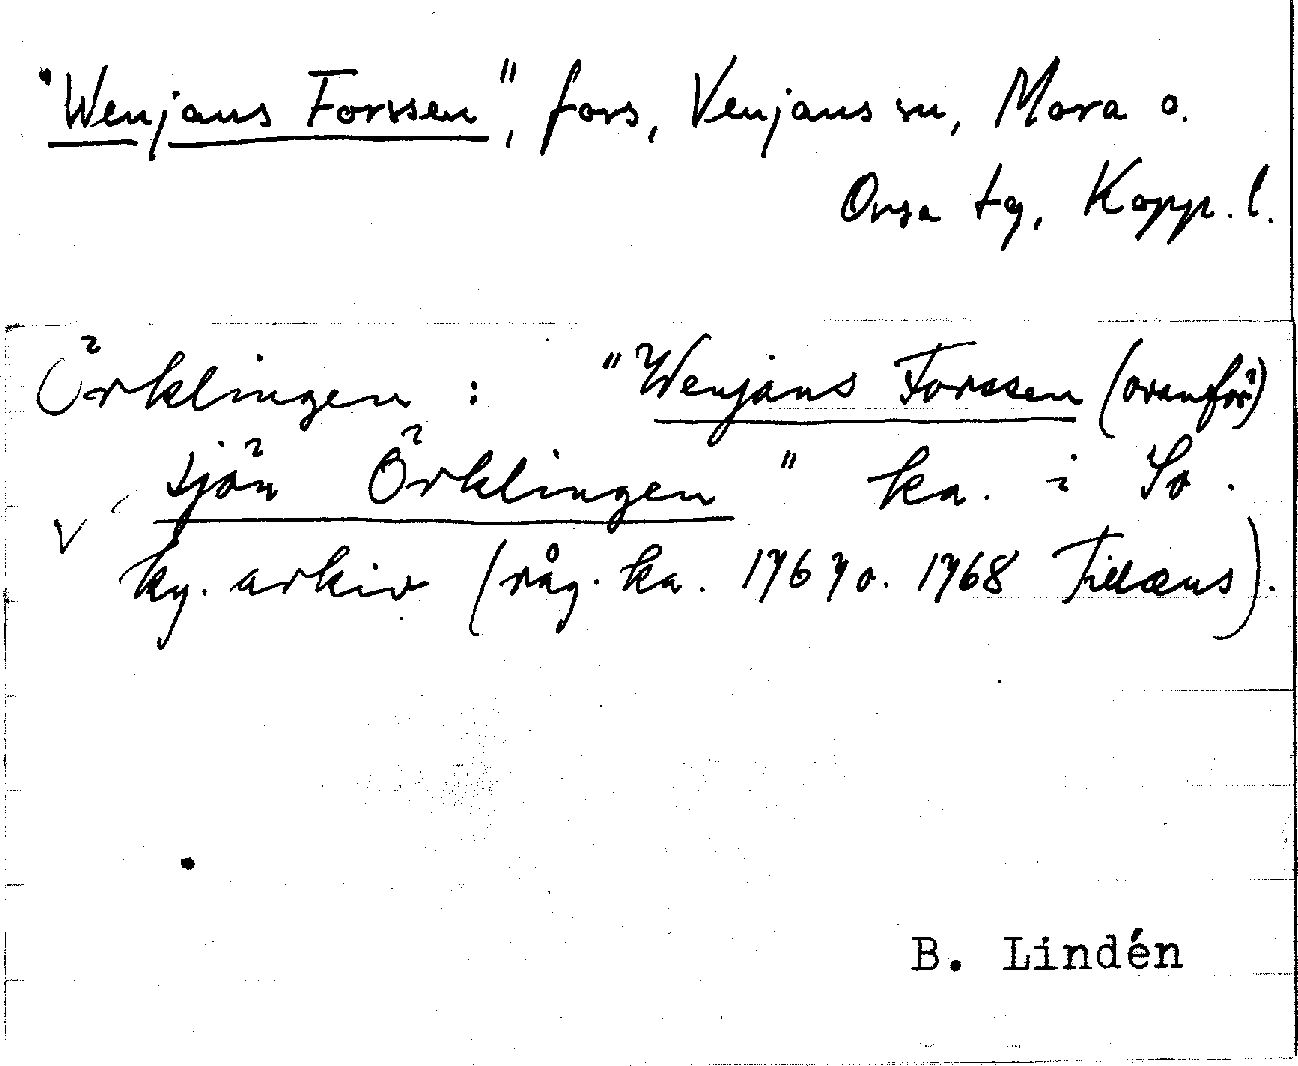 "Wenjans Forssen", fors, Venjans sn, Mora o.
Orsa tg, Kopp. l.
Örklingen : "Wenjans Forssen (ovanför)
sjön Örklingen" ka. i So.
V kg. arkiv (råg. ka. 1767 o. 1768 Tillæus).
B. Lindén